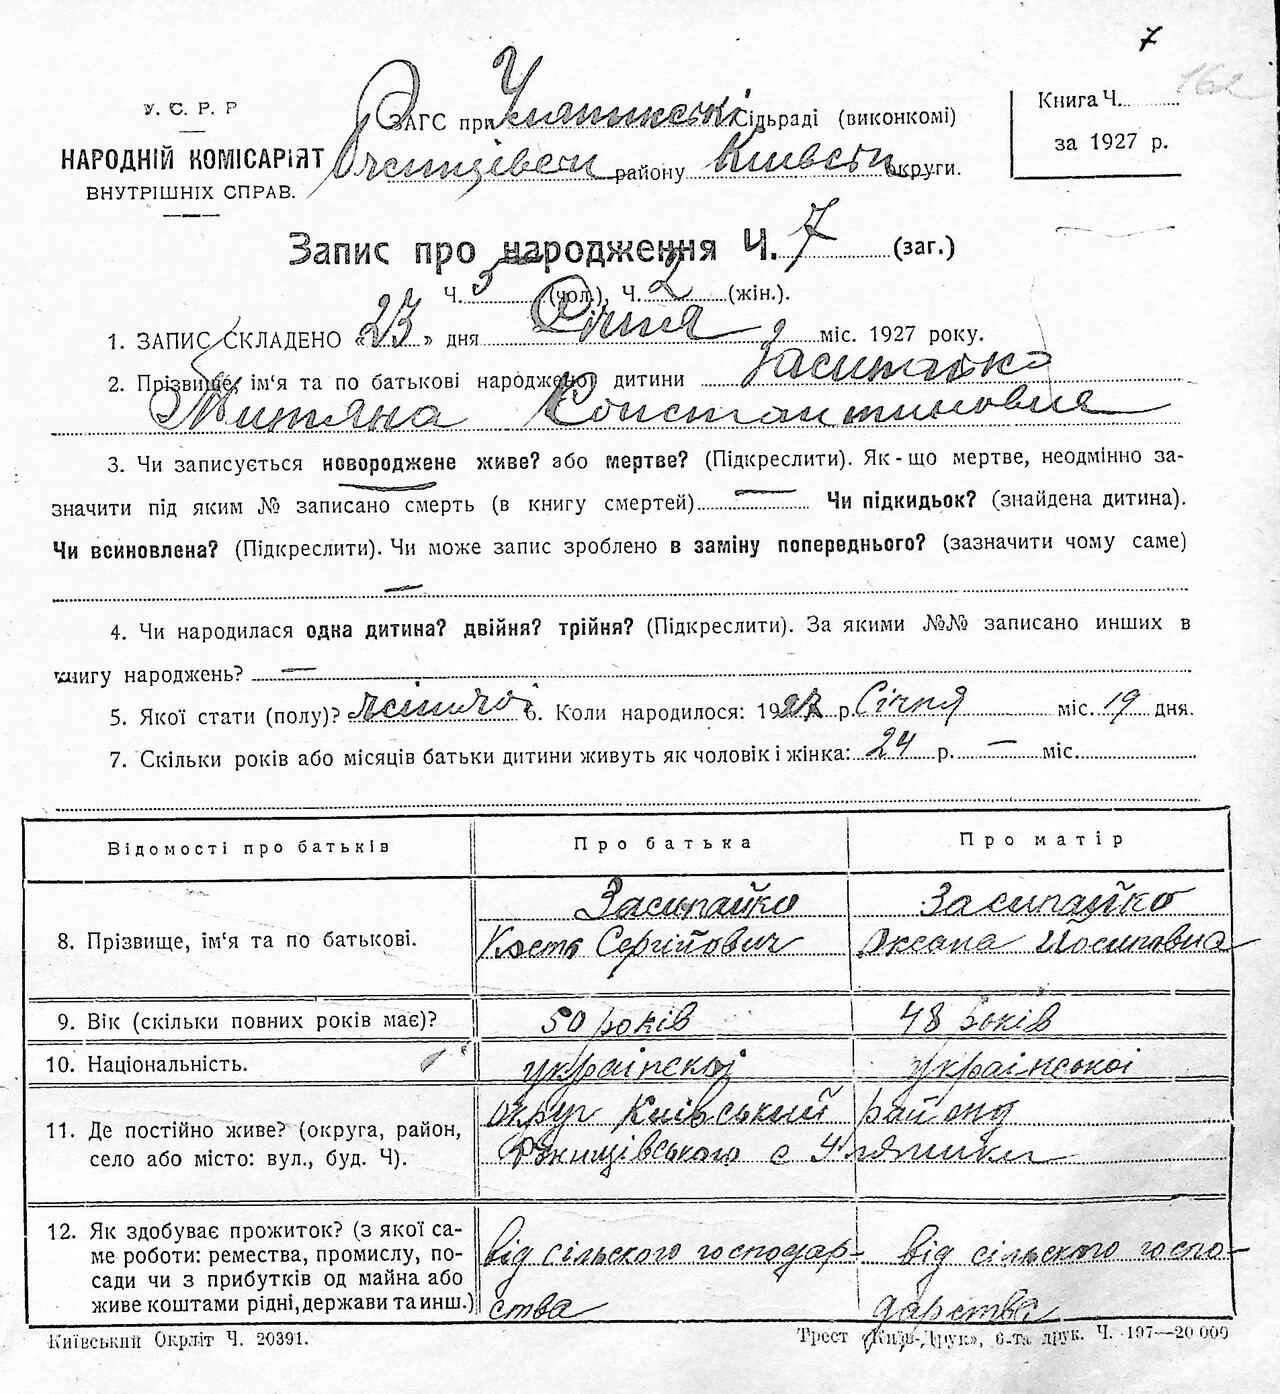 7
162
У. С. Р. Р
НАРОДНІЙ КОМІСАРІЯТ
ВНУТРІШНІХ СПРАВ.
ЗАГС при Сільраді (виконкомі)
району Київськ округи.
Книга Ч.
за 1927 р.
Запис про народження Ч. 7 (заг.)
Ч. 5 (чол.), Ч. 2 (жін.).
1. ЗАПИС СКЛАДЕНО «23» дня Січня міс. 1927 року.
2. Прізвище, ім'я та по батькові народженої дитини Засипайко
Титяна Константиновна
3. Чи записується новороджене живе? або мертве? (Підкреслити). Як-що мертве, неодмінно за-
значити під яким № записано смерть (в книгу смертей) — Чи підкидьок? (знайдена дитина).
Чи всиновлена? (Підкреслити). Чи може запис зроблено в заміну попереднього? (зазначити чому саме)
—
4. Чи народилася одна дитина? двійня? трійня? (Підкреслити). За якими №№ записано инших в
книгу народжень? —
5. Якої стати (полу)? жіночої 6. Коли народилося: 1927 р. Січня міс. 19 дня.
7. Скільки років або місяців батьки дитини живуть як чоловік і жінка: 24 р. — міс.
Відомості про батьків Про батька Про матір
8. Прізвище, ім'я та по батькові.
Засипайко Засипайко
Кость Сергійович Оксана Йосиповна
9. Вік (скільки повних років має)? 50 років 48 років
10. Національність. українскої української
11. Де постійно живе? (округа, район,
село або місто: вул., буд. Ч).
округ Київський району
Ржищівського с Уляники
12. Як здобуває прожиток? (з якої са-
ме роботи: ремества, промислу, по-
сади чи з прибутків од майна або
живе коштами рідні, держави та инш.)
від сільского господар- від сільского госпо-
ства дарства
Київський Окрліт Ч. 20391. Трест «Київ-Друк», 6-та друк. Ч. 197—20 000